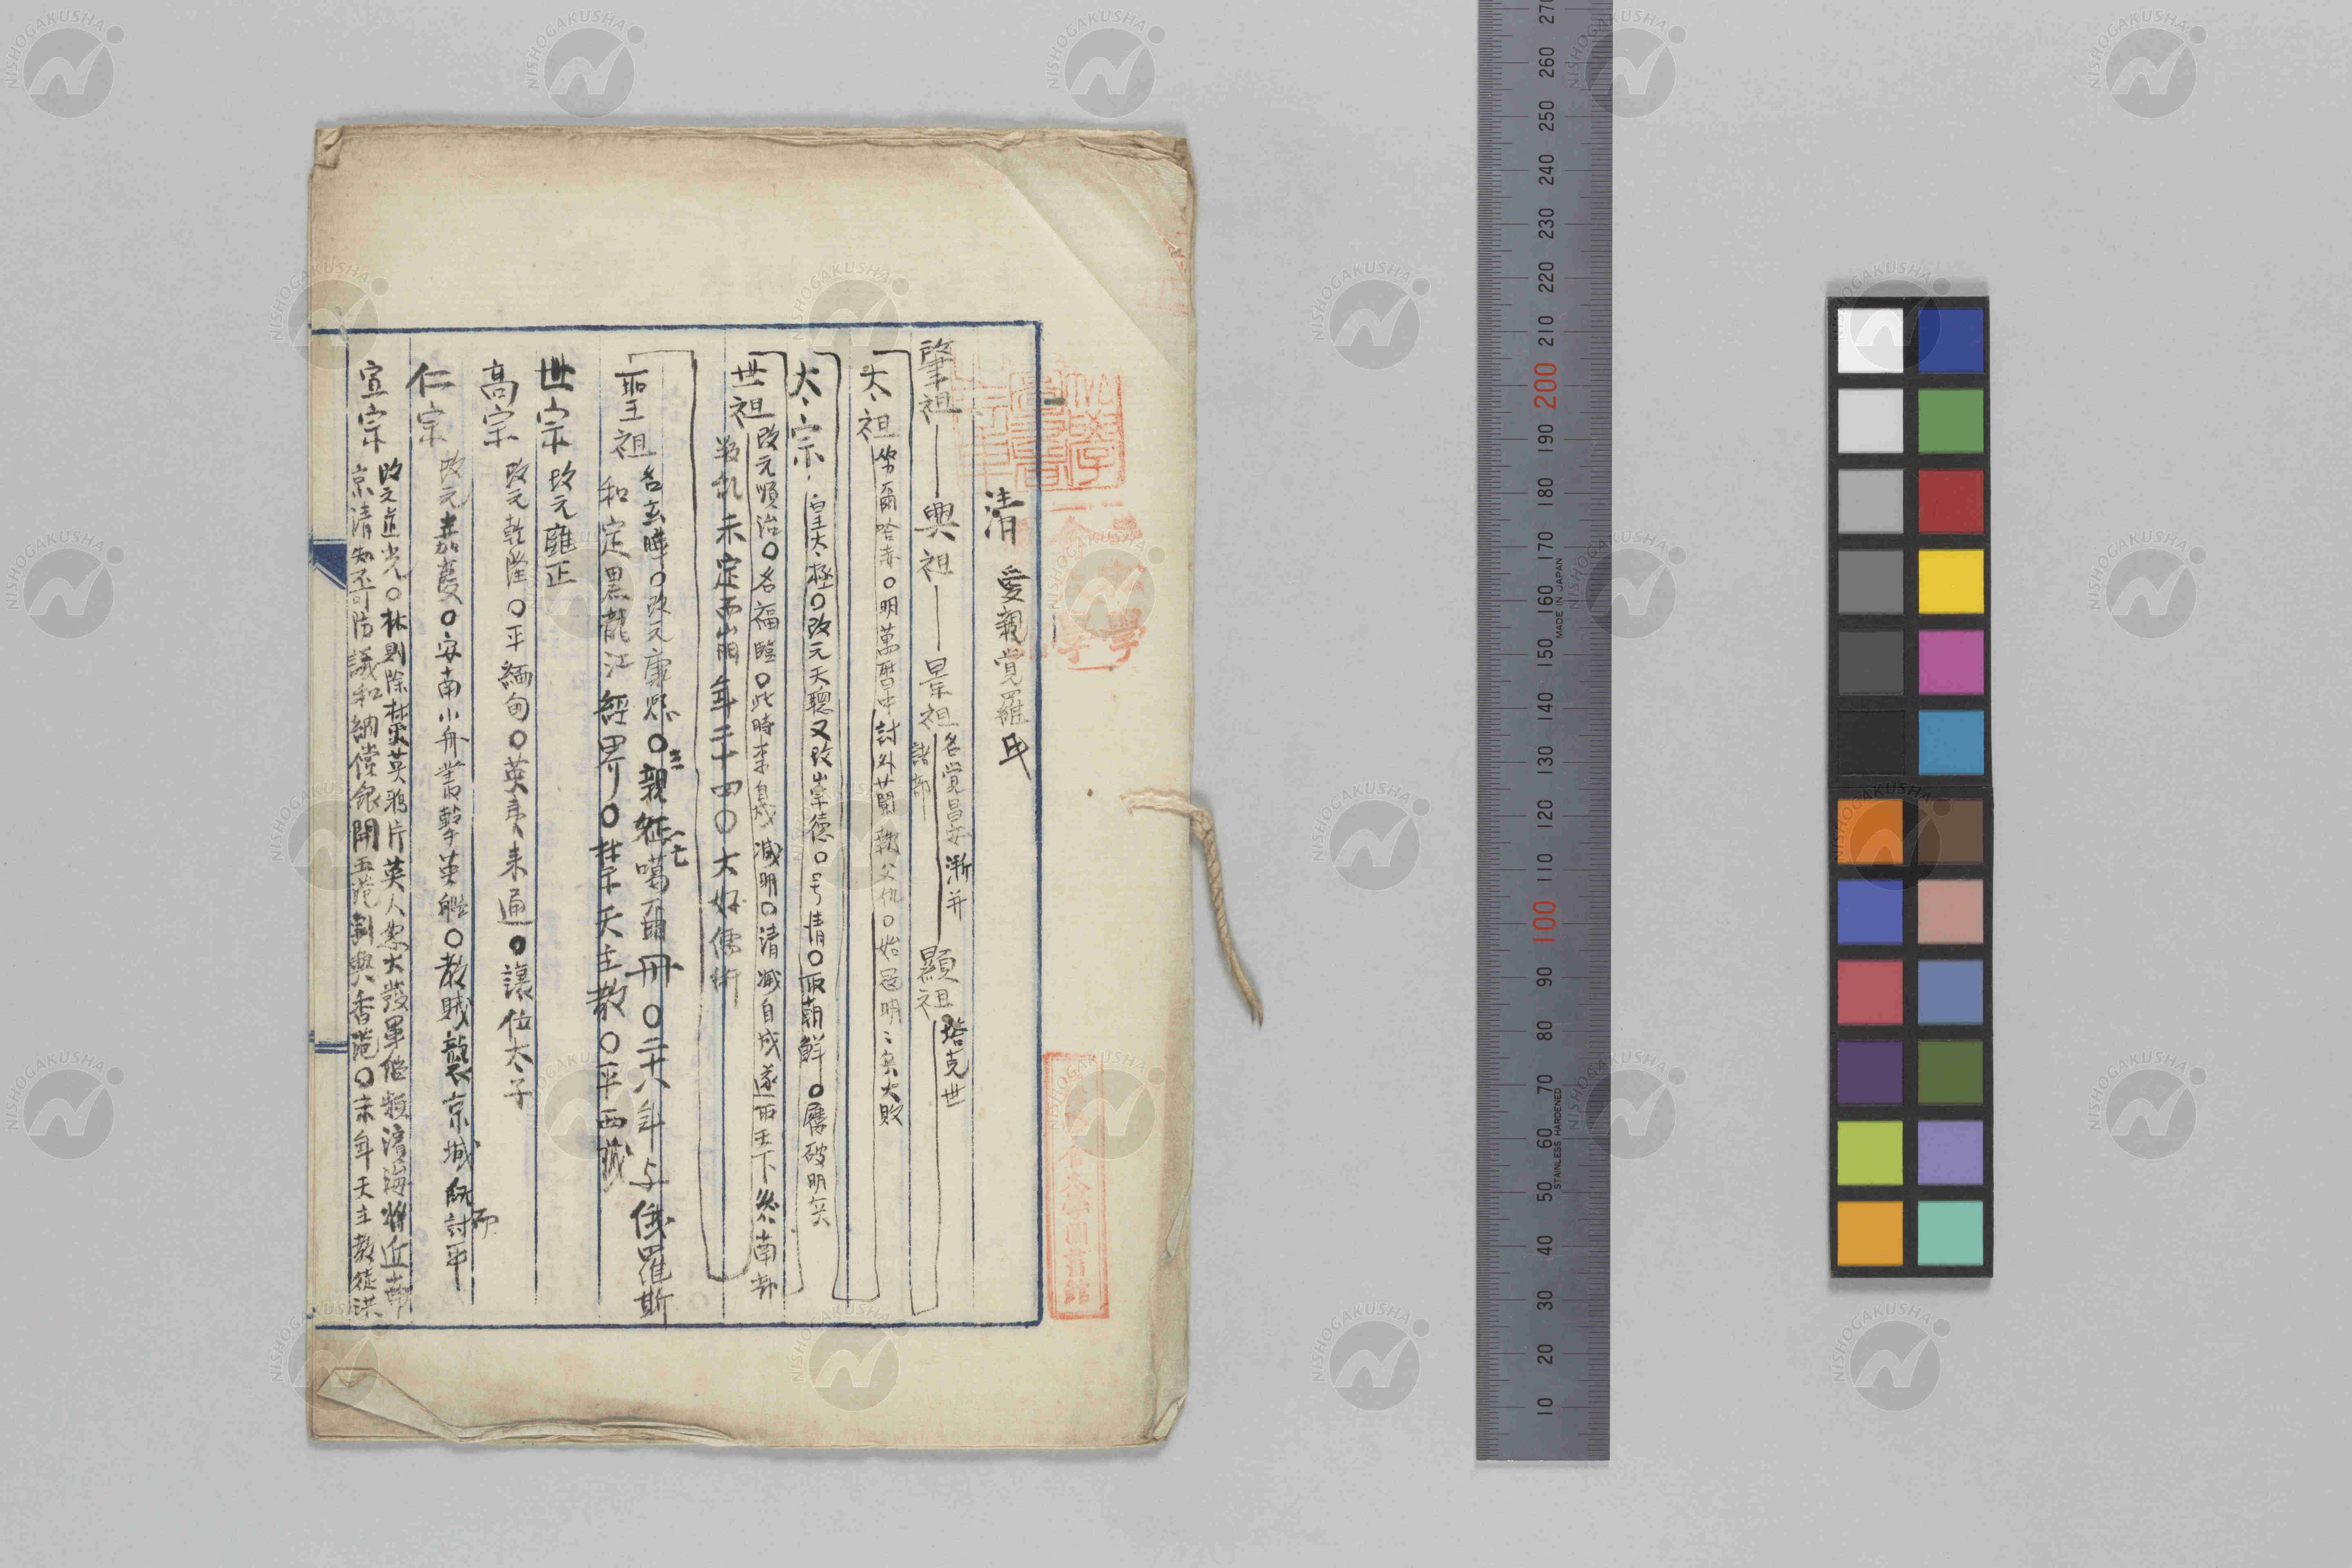 清 愛親覚羅氏
肇祖 興祖 景祖 各覚昌安漸并
諸部
顯祖 塔克世
太祖 弩爾哈赤○明萬暦中討外蘭報父仇○始冦明明兵大敗
太宗 皇太極○改元天聰又改崇德○号清○取朝鮮○屢破明矣
世祖 改元順治○名福臨○此時李自成滅明○清滅自成遂取天下
未定而崩年二十四○大好儒術
聖祖 名玄曄○改元康熙○三親征噶爾丹○二十八年与俄羅斯
和定黒龍江經界○禁天主教○平西蔵
世宗 改元雍正
高宗 改元乾隆○平緬甸○英夷来通○讓位太子
仁宗 改元嘉慶○安南小舟 英艦○教賊襲京城 討平
宣宗 改元道光○林則除 禁英鴉片英人怒大發軍艦頻 海将近南
京清知不可防議和納償銀開五港割與香港○末年天主教徒洪
NISHOGAKUSHA
270
260
250
240
230
220
210
200
190
180
170
160
150
140
130
120
110
100
90
80
70
60
50
40
30
20
10
MADE IN JAPAN
STAINLESS HARDENED